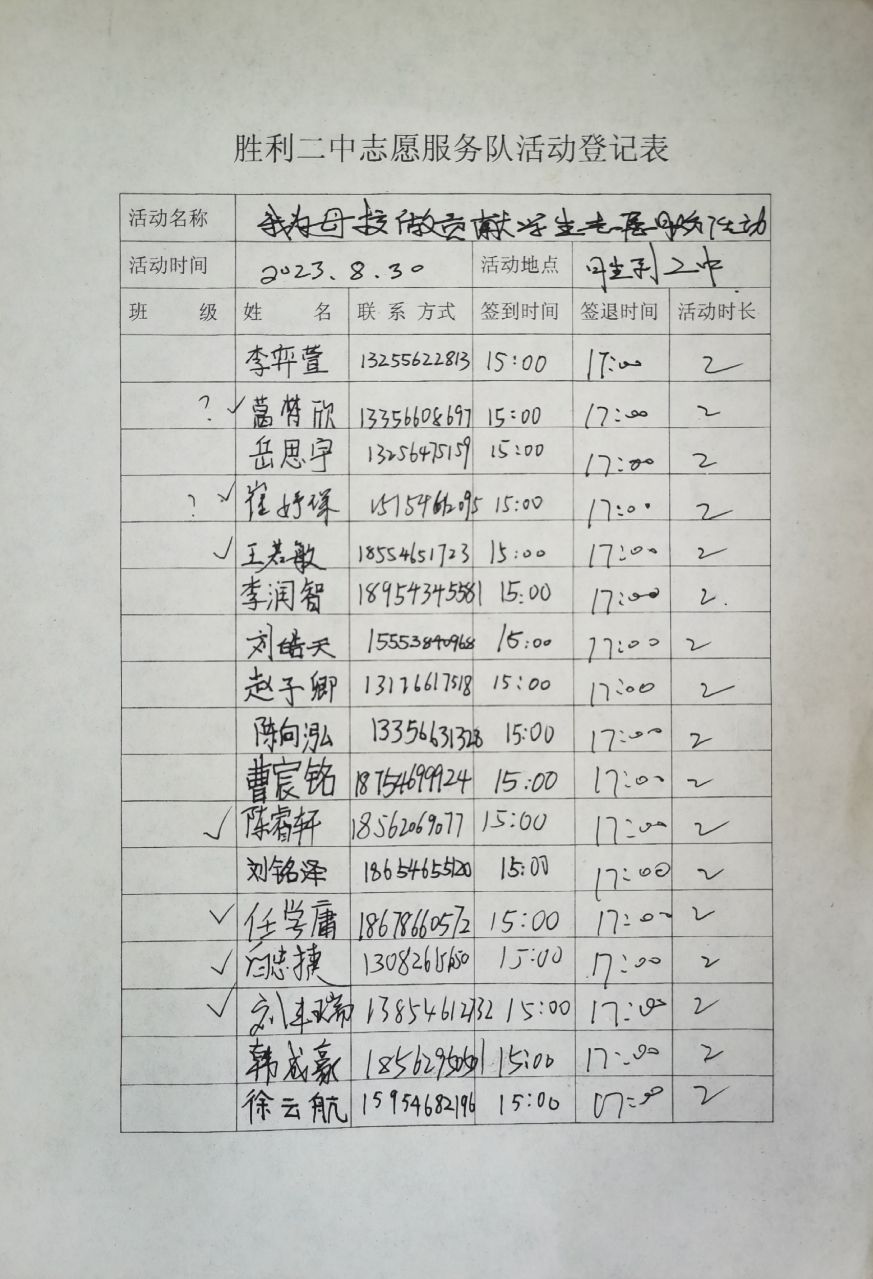 胜利二中志愿服务队活动登记表
活动名称 我为母校做贡献学生志愿服务活动
活动时间 2023.8.30 活动地点 胜利二中
班 级 姓 名 联系方式 签到时间 签退时间 活动时长
李弈萱 13255622813 15:00 17:00 2
? ✓ 葛梦欣 13356608697 15:00 17:00 2
岳思宇 13256475159 15:00 17:00 2
? ✓ 崔妤琛 15154662095 15:00 17:00 2
✓ 王若敏 18554651723 15:00 17:00 2
李润智 18954345581 15:00 17:00 2
刘皓天 15553840968 15:00 17:00 2
赵子卿 13176617518 15:00 17:00 2
陈向泓 13356631328 15:00 17:00 2
曹宸铭 18754699924 15:00 17:00 2
✓ 陈睿轩 18562069077 15:00 17:00 2
刘铭泽 18654655120 15:00 17:00 2
✓ 任学庸 18678660572 15:00 17:00 2
✓ 忠捷 15:00 17:00 2
✓ 刘 瑞 13854612732 15:00 17:00 2
韩成豪 15:00 17:00 2
徐云航 15954682196 15:00 07:00 2